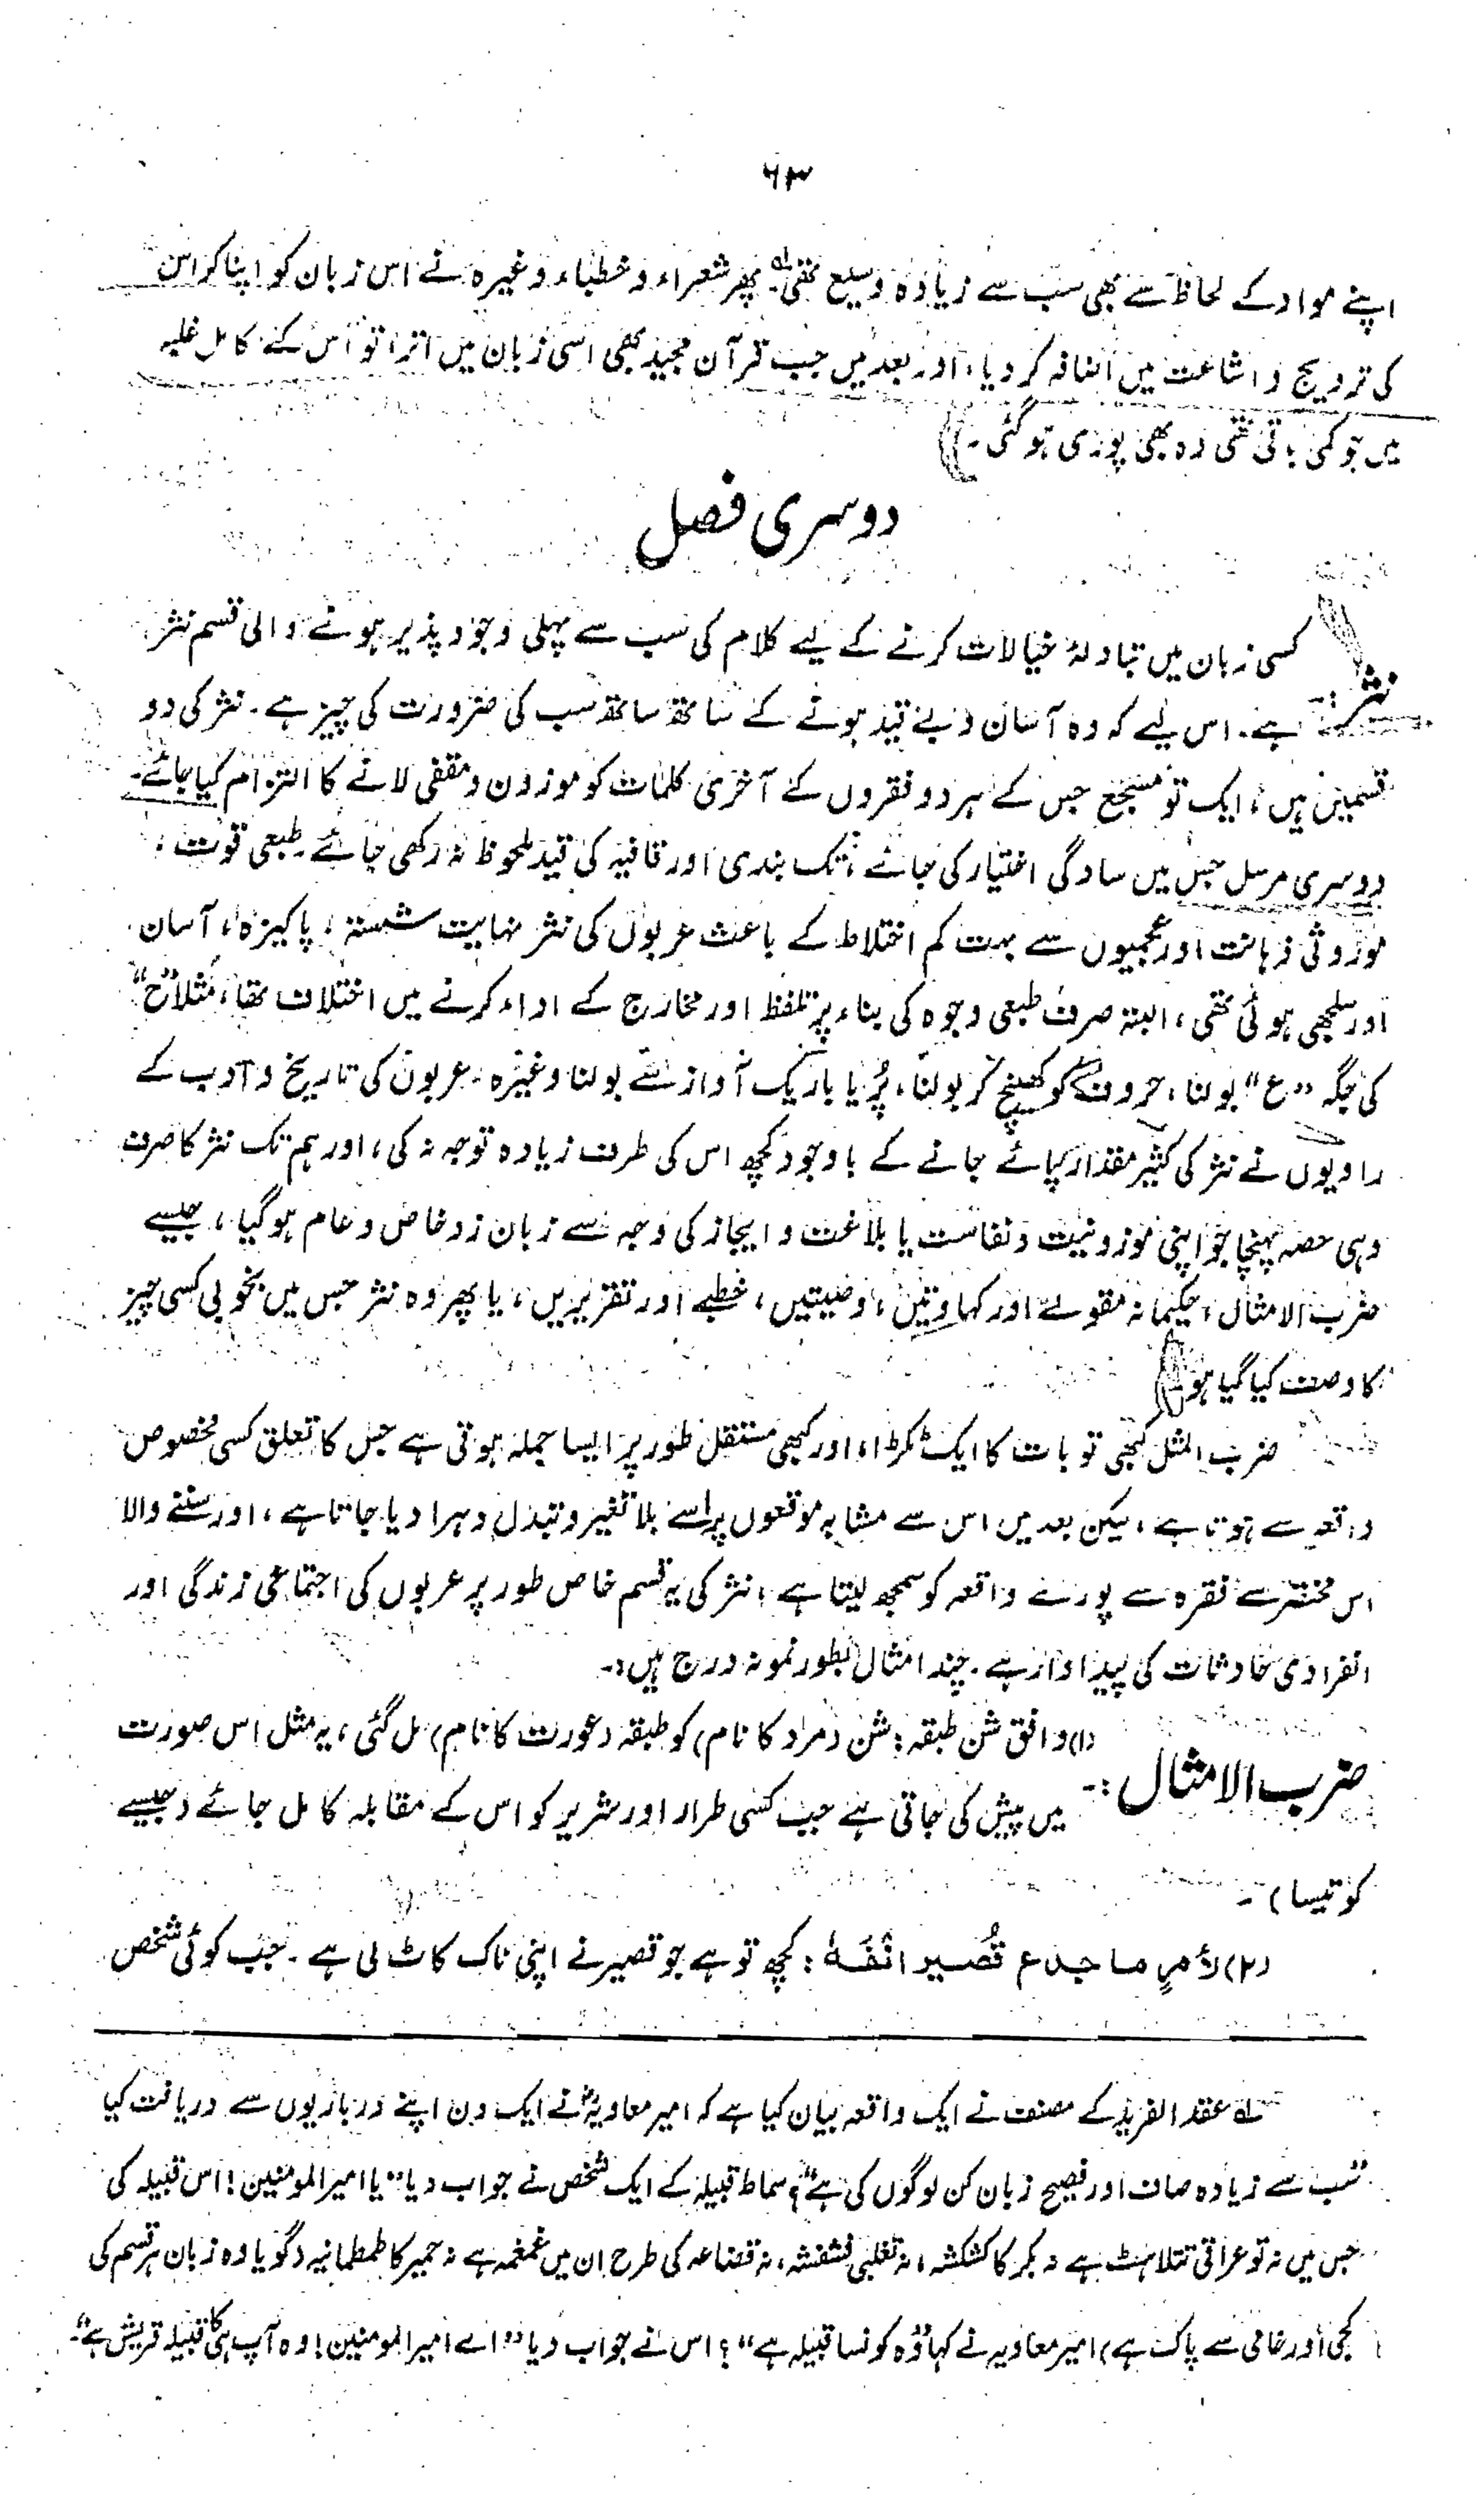 ۶۳
اپنے مواد کے لحاظ سے بھی سب سے زیادہ وسیع تھی۔ لہ پھر شعراء و خطباء وغیرہ نے اس زبان کو اپنا کر اس
کی ترویج و اشاعت میں اضافہ کر دیا، اور بعد میں جب قرآن مجید بھی اسی زبان میں اترا تو اس کے کامل غلبہ
میں جو کمی باقی تھی وہ بھی پوری ہو گئی۔
دوسری فصل
نثر:۔ کسی زبان میں تبادلۂ خیالات کرنے کے لیے کلام کی سب سے پہلی وجود پذیر ہونے والی قسم نثر
ہے۔ اس لیے کہ وہ آسان و بے قید ہونے کے ساتھ ساتھ سب کی ضرورت کی چیز ہے۔ نثر کی دو
قسمیں ہیں، ایک تو مسجع جس کے ہر دو فقروں کے آخری کلمات کو موزون و مقفی لانے کا التزام کیا جائے۔
دوسری مرسل جس میں سادگی اختیار کی جائے، تک بندی اور قافیہ کی قید ملحوظ نہ رکھی جائے۔ طبعی قوت،
موروثی ذہانت اور عجمیوں سے بہت کم اختلاط کے باعث عربوں کی نثر نہایت شستہ، پاکیزہ، آسان
اور سلجھی ہوئی تھی، البتہ صرف طبعی وجوہ کی بناء پر تلفظ اور مخارج کے اداء کرنے میں اختلاف تھا، مثلاً "ح"
کی جگہ "ع" بولنا، حروف کو کھینچ کر بولنا، پُر یا باریک آواز سے بولنا وغیرہ۔ عربوں کی تاریخ و ادب کے
راویوں نے نثر کی کثیر مقدار پائے جانے کے باوجود کچھ اس کی طرف زیادہ توجہ نہ کی، اور ہم تک نثر کا صرف
وہی حصہ پہنچا جو اپنی موزونیت و نفاست یا بلاغت و ایجاز کی وجہ سے زبان زد خاص و عام ہو گیا، جیسے
ضرب الامثال، حکیمانہ مقولے اور کہاوتیں، وصیتیں، خطبے اور تقریریں، یا پھر وہ نثر جس میں بخوبی کسی چیز
کا وصف کیا گیا ہو۔
ضرب المثل کبھی تو بات کا ایک ٹکڑا، اور کبھی مستقل طور پر ایسا جملہ ہوتی ہے جس کا تعلق کسی مخصوص
واقعہ سے ہوتا ہے، لیکن بعد میں اس سے مشابہ موقعوں پر اسے بلا تغیر و تبدل دہرا دیا جاتا ہے، اور سننے والا
اس مختصر سے فقرہ سے پورے واقعہ کو سمجھ لیتا ہے، نثر کی یہ قسم خاص طور پر عربوں کی اجتماعی زندگی اور
انفرادی حادثات کی پیداوار ہے۔ چند امثال بطور نمونہ درج ہیں:۔
ضرب الامثال:۔ (۱) وافق شن طبقہ: شن (مرد کا نام) کو طبقہ (عورت کا نام) مل گئی، یہ مثل اس صورت
میں پیش کی جاتی ہے جب کسی طرار اور شریر کو اس کے مقابلہ کا مل جائے (جیسے
کو تیسا)۔
(۲) لأمرٍ ما جدع قُصیر انْفَہٗ: کچھ تو ہے جو قصیر نے اپنی ناک کاٹ لی ہے۔ جب کوئی شخص
لہ عقد الفرید کے مصنف نے ایک واقعہ بیان کیا ہے کہ امیر معاویہؓ نے ایک دن اپنے درباریوں سے دریافت کیا
"سب سے زیادہ صاف اور فصیح زبان کن لوگوں کی ہے"؟ سماط قبیلہ کے ایک شخص نے جواب دیا "یا امیر المومنین! اس قبیلہ کی
جس میں نہ تو عراقی تتلاہٹ ہے نہ بکر کا کشکشہ، نہ تغلبی شفشفہ، نہ قضاعہ کی طرح ان میں غمغمہ ہے نہ حمیر کا طمطمانیہ (گویا وہ زبان ہر قسم کی
کجی اور خامی سے پاک ہے) امیر معاویہ نے کہا "وہ کونسا قبیلہ ہے"؟ اس نے جواب دیا "اے امیر المومنین! وہ آپ ہی کا قبیلہ قریش ہے"۔